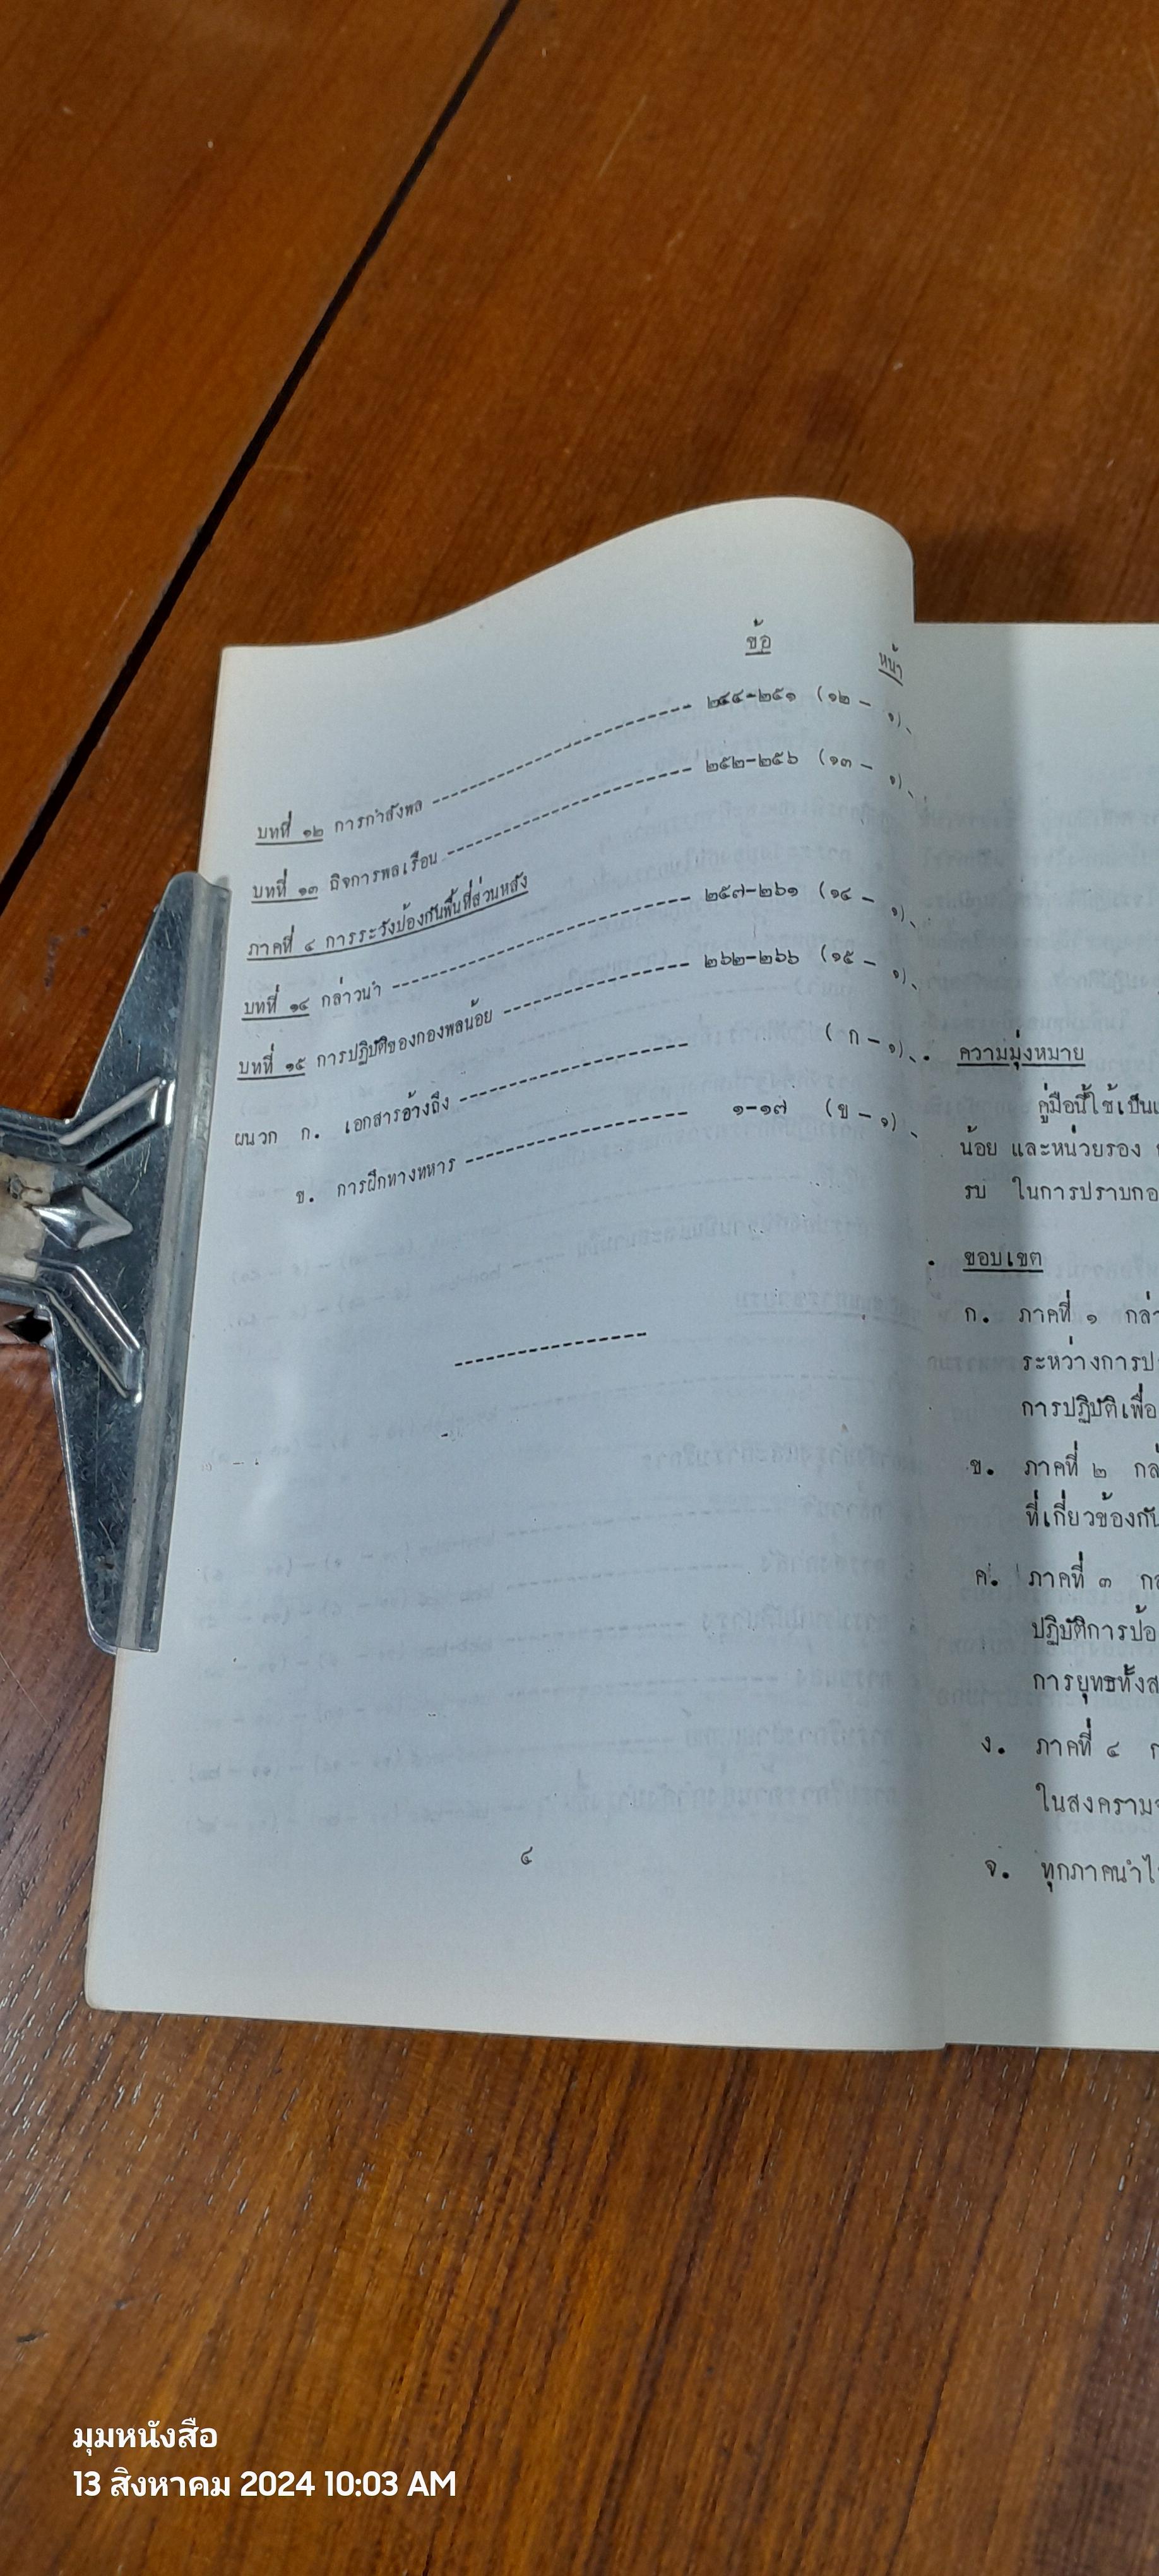 ข้อ หน้า
บทที่ ๑๒ การกำลังพล ---------------- ๒๔๔-๒๕๑ (๑๒ - ๑)
บทที่ ๑๓ กิจการพลเรือน ---------------- ๒๕๒-๒๕๖ (๑๓ - ๑)
ภาคที่ ๔ การระวังป้องกันพื้นที่ส่วนหลัง
บทที่ ๑๔ กล่าวนำ ---------------- ๒๕๗-๒๖๑ (๑๔ - ๑)
บทที่ ๑๕ การปฏิบัติของกองพลน้อย ---------------- ๒๖๒-๒๖๖ (๑๕ - ๑)
ผนวก ก. เอกสารอ้างถึง ---------------- ( ก - ๑)
ข. การฝึกทางทหาร ---------------- ๑-๑๗ (ข - ๑)
----------------
๔
ความมุ่งหมาย
คู่มือนี้ใช้เป็น
น้อย และหน่วยรอง
รบ ในการปราบกอ
ขอบเขต
ก. ภาคที่ ๑ กล่า
ระหว่างการป
การปฏิบัติเพื่อ
ข. ภาคที่ ๒ กล่
ที่เกี่ยวข้องกัน
ค. ภาคที่ ๓ กล
ปฏิบัติการป้อ
การยุทธทั้งส
ง. ภาคที่ ๔ ก
ในสงคราม
จ. ทุกภาคนำไ
มุมหนังสือ
13 สิงหาคม 2024 10:03 AM